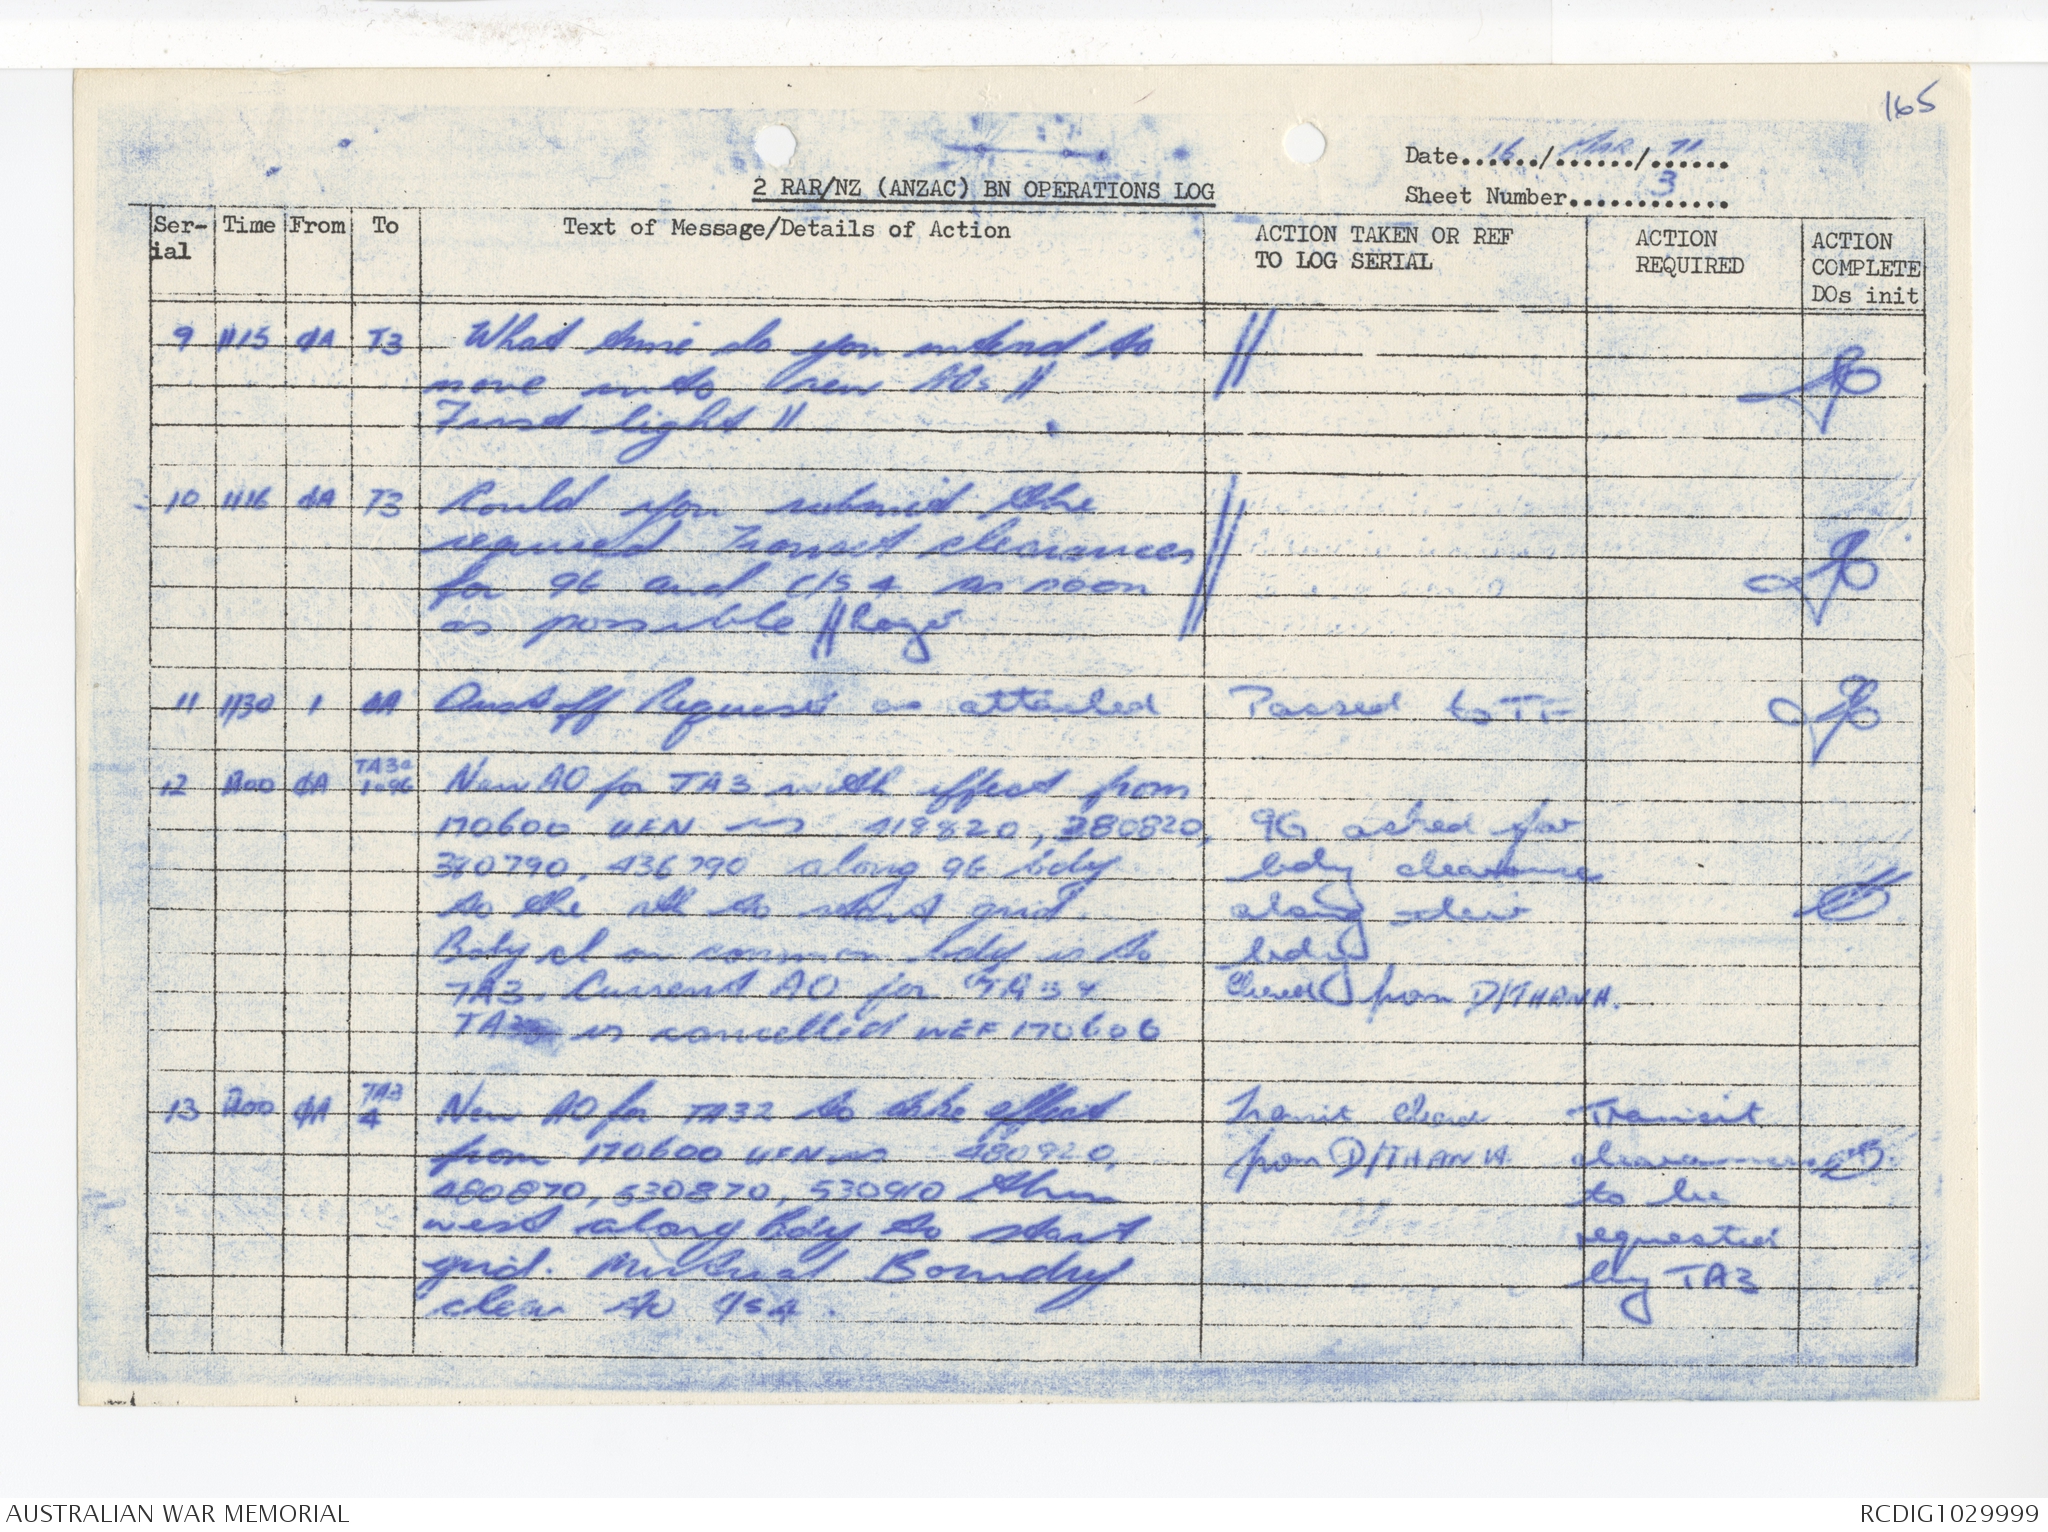 165
Date 16 / MAR / 71
2 RAR/NZ (ANZAC) BN OPERATIONS LOG
Sheet Number 3
Ser-ial Time From To Text of Message/Details of Action ACTION TAKEN OR REF TO LOG SERIAL ACTION REQUIRED ACTION COMPLETE DOs init
9 1115 ØA T3 What time do you intend to
move into new AOs //
First light //
10 1116 ØA T3 Could you submit the
required Transit clearances
for 96 and C/S 4 as soon
as possible // Roger
11 1130 1 ØA Dustoff Request as attached Passed to TF
12 1200 ØA TA3
New AO for TA3 with effect from
170600 UFN 419820, 380820,
380790, 436790 along 96 bdy
to the nth to start grid.
Bdy cl on common bdy is to
TA3. Current AO for TA3 &
is cancelled WEF 170600
96 asked for
bdy clearance
along their
bdy
from D/THANH.
13 1200 ØA TA3
4
New AO for TA32 to take effect
from 170600 UFN 480920,
480870, 530870, 530910 then
west along bdy to start
grid. Mutual Boundry
clear to C/S 4.
Transit
from D/THANH.
Transit
clearances
to be
requested
by TA3
AUSTRALIAN WAR MEMORIAL
RCDIG1029999